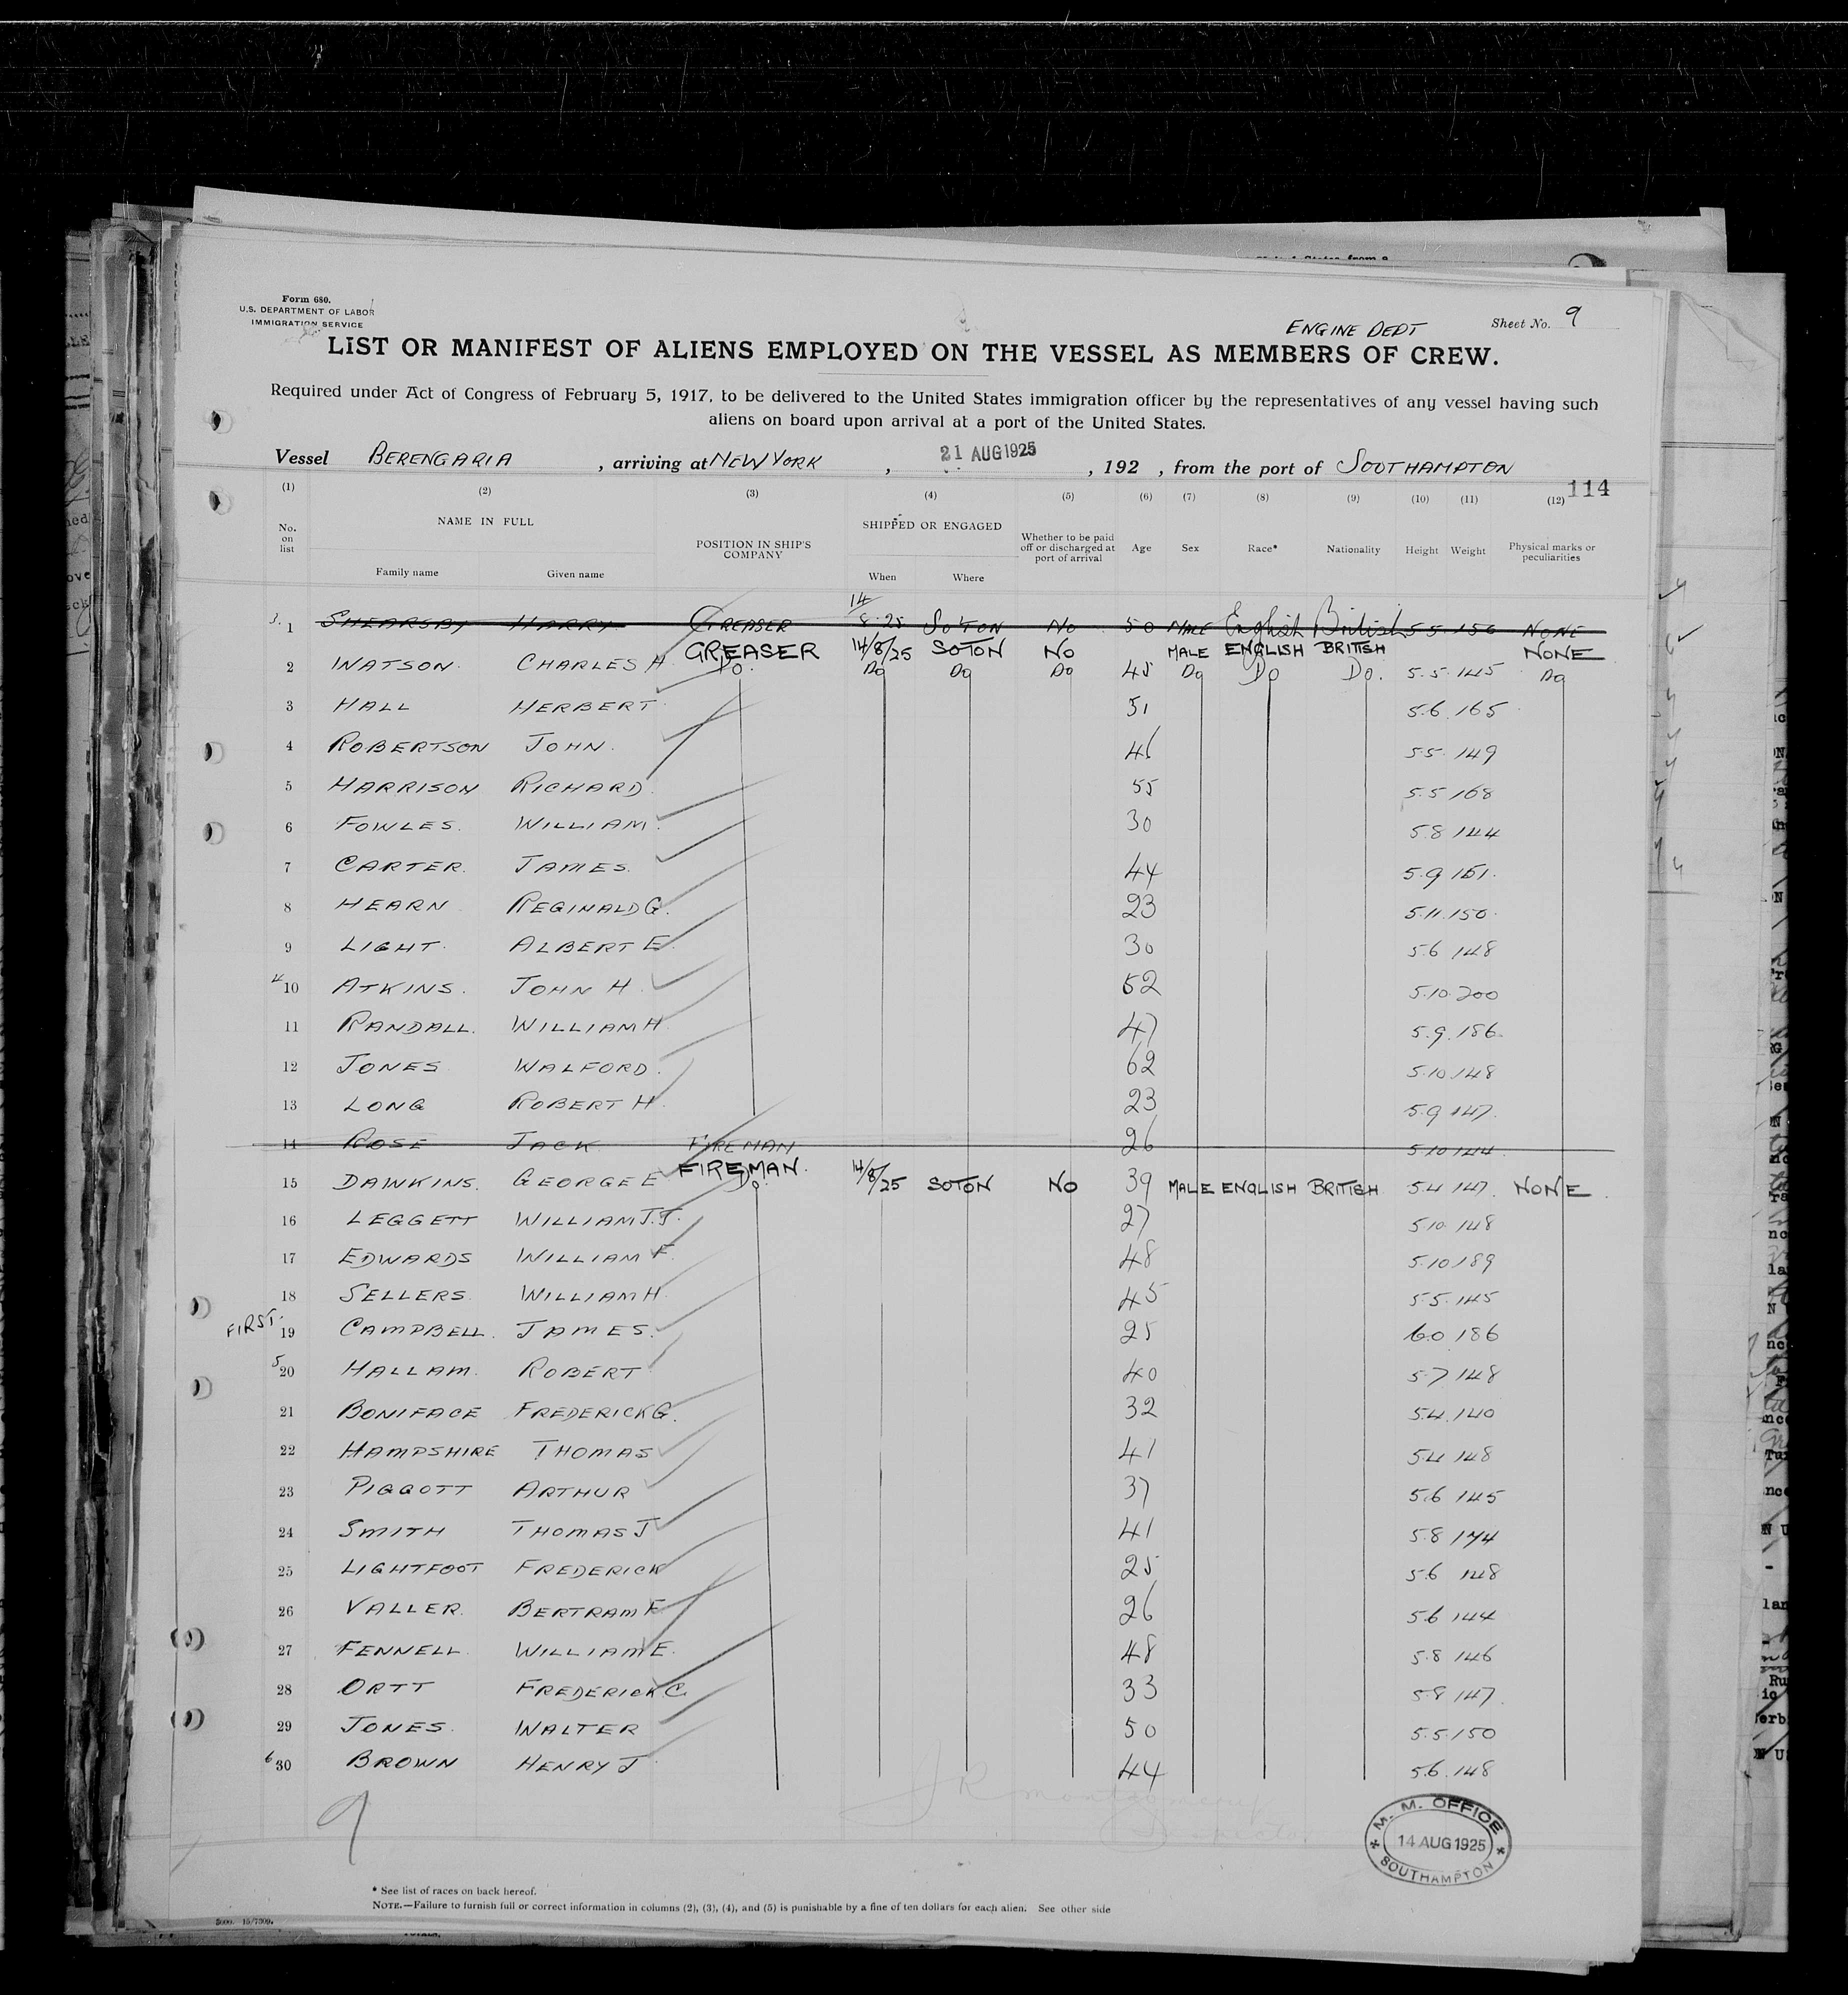 Form 680.
U.S. DEPARTMENT OF LABOR
IMMIGRATION SERVICE
ENGINE DEPT Sheet No. 9
LIST OR MANIFEST OF ALIENS EMPLOYED ON THE VESSEL AS MEMBERS OF CREW.
Required under Act of Congress of February 5, 1917, to be delivered to the United States immigration officer by the representatives of any vessel having such
aliens on board upon arrival at a port of the United States.
Vessel BERENGARIA, arriving at NEW YORK, 21 AUG 1925, 192 , from the port of SOUTHAMPTON
114
(1) (2) (3) (4) (5) (6) (7) (8) (9) (10) (11) (12)
No. on list NAME IN FULL Family name Given name POSITION IN SHIP'S COMPANY SHIPPED OR ENGAGED When Where Whether to be paid off or discharged at port of arrival Age Sex Race* Nationality Height Weight Physical marks or peculiarities
1 SHEARSBY HARRY GREASER 14/8.25 SO'TON NO 50 MALE English British 5 5 150 NONE
GREASER 14/8/25 SOTON NO MALE ENGLISH BRITISH NONE
2 WATSON. CHARLES H. Do. Do Do Do 45 Do Do Do. 5.5.145 Do
3 HALL HERBERT. 51 5.6.165
4 ROBERTSON JOHN. 46 5.5.149
5 HARRISON RICHARD. 55 5.5 168
6 FOWLES. WILLIAM. 30 5.8 144
7 CARTER. JAMES. 44 5.9 161.
8 HEARN REGINALD G. 23 5.11.150.
9 LIGHT. ALBERT E. 30 5.6 148
4 10 ATKINS. JOHN H. 52 5.10.200
11 RANDALL. WILLIAM H. 47 5.9.186.
12 JONES WALFORD. 62 5.10.148
13 LONG ROBERT H. 23 5.9 147.
14 ROSE JACK FIREMAN 26 5.10 144.
FIREMAN.
15 DAWKINS. GEORGE E Do. 14/8/25 SOTON NO 39 MALE ENGLISH BRITISH 5.4 147. NONE
16 LEGGETT WILLIAM J.J. 27 5.10. 148
17 EDWARDS WILLIAM F. 48 5.10 189
18 SELLERS. WILLIAM H. 45 5.5.145
FIRST. 19 CAMPBELL. JAMES. 25 6.0 186
5 20 HALLAM. ROBERT 40 5.7 148
21 BONIFACE FREDERICK G. 32 5.4.140
22 HAMPSHIRE THOMAS 41 5.4 148
23 PIGGOTT ARTHUR 37 5.6 145
24 SMITH THOMAS J 41 5.8 174
25 LIGHTFOOT FREDERICK 25 5.6 148
26 VALLER. BERTRAM F. 26 5.6 144
27 FENNELL WILLIAM E. 48 5.8 146
28 ORTT FREDERICK C. 33 5.8 147.
29 JONES. WALTER 50 5.5.150
6 30 BROWN HENRY J. 44 5.6.148
9
J R Montgomery
Inspector
M. M. OFFICE
14 AUG 1925
SOUTHAMPTON
* See list of races on back hereof.
NOTE.—Failure to furnish full or correct information in columns (2), (3), (4), and (5) is punishable by a fine of ten dollars for each alien. See other side